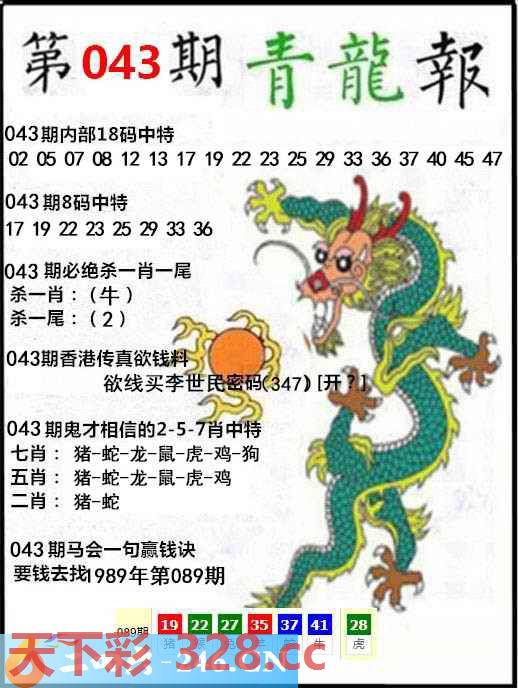 第043期青龍報
043期内部18码中特
02 05 07 08 12 13 17 19 22 23 25 29 33 36 37 40 45 47
043期8码中特
17 19 22 23 25 29 33 36
043 期必绝杀一肖一尾
杀一肖：（牛）
杀一尾：（2）
043期香港传真欲钱料
欲线买李世民密码(347) [开？]
043期鬼才相信的2-5-7肖中特
七肖： 猪-蛇-龙-鼠-虎-鸡-狗
五肖： 猪-蛇-龙-鼠-虎-鸡
二肖： 猪-蛇
043期马会一句赢钱诀
要钱去找1989年第089期
089期 19 22 27 35 37 41 28
猪 猴 兔 羊 蛇 牛 虎
天下彩-328.cc